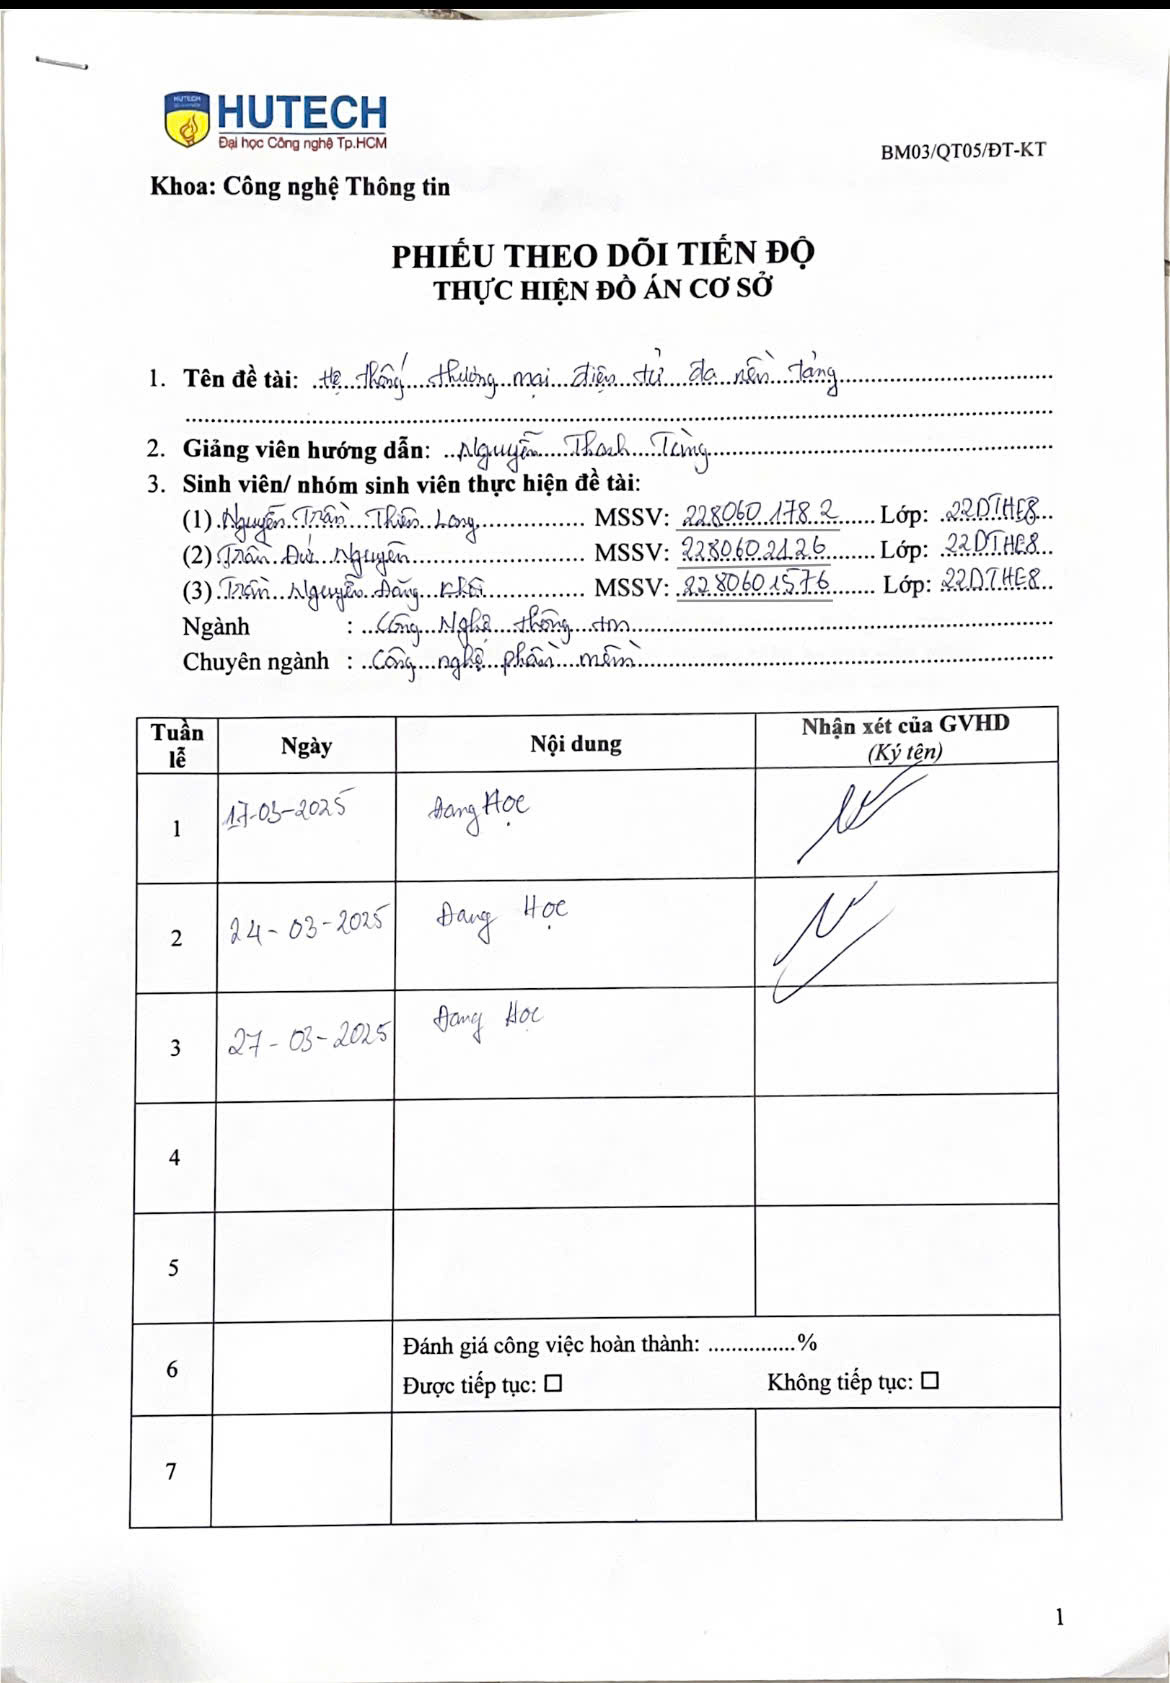 HUTECH
HUTECH
Đại học Công nghệ Tp.HCM
BM03/QT05/ĐT-KT
Khoa: Công nghệ Thông tin
PHIẾU THEO DÕI TIẾN ĐỘ
THỰC HIỆN ĐỒ ÁN CƠ SỞ
1. Tên đề tài: Hệ thống thương mại điện tử đa nền tảng
2. Giảng viên hướng dẫn: Nguyễn Thanh Tùng
3. Sinh viên/ nhóm sinh viên thực hiện đề tài:
(1) Nguyễn Trần Thiên Long MSSV: 2280601782 Lớp: 22DTHE8
(2) Trần Đức Nguyên MSSV: 2280602126 Lớp: 22DTHE8
(3) Trần Nguyễn Đăng Khôi MSSV: 2280601576 Lớp: 22DTHE8
Ngành : Công Nghệ thông tin
Chuyên ngành : Công nghệ phần mềm
Tuần lễ Ngày Nội dung Nhận xét của GVHD (Ký tên)
1 17-03-2025 Đang Học
2 24-03-2025 Đang Học
3 27-03-2025 Đang Học
4
5
6 Đánh giá công việc hoàn thành: ...............%
Được tiếp tục: ☐ Không tiếp tục: ☐
7
1